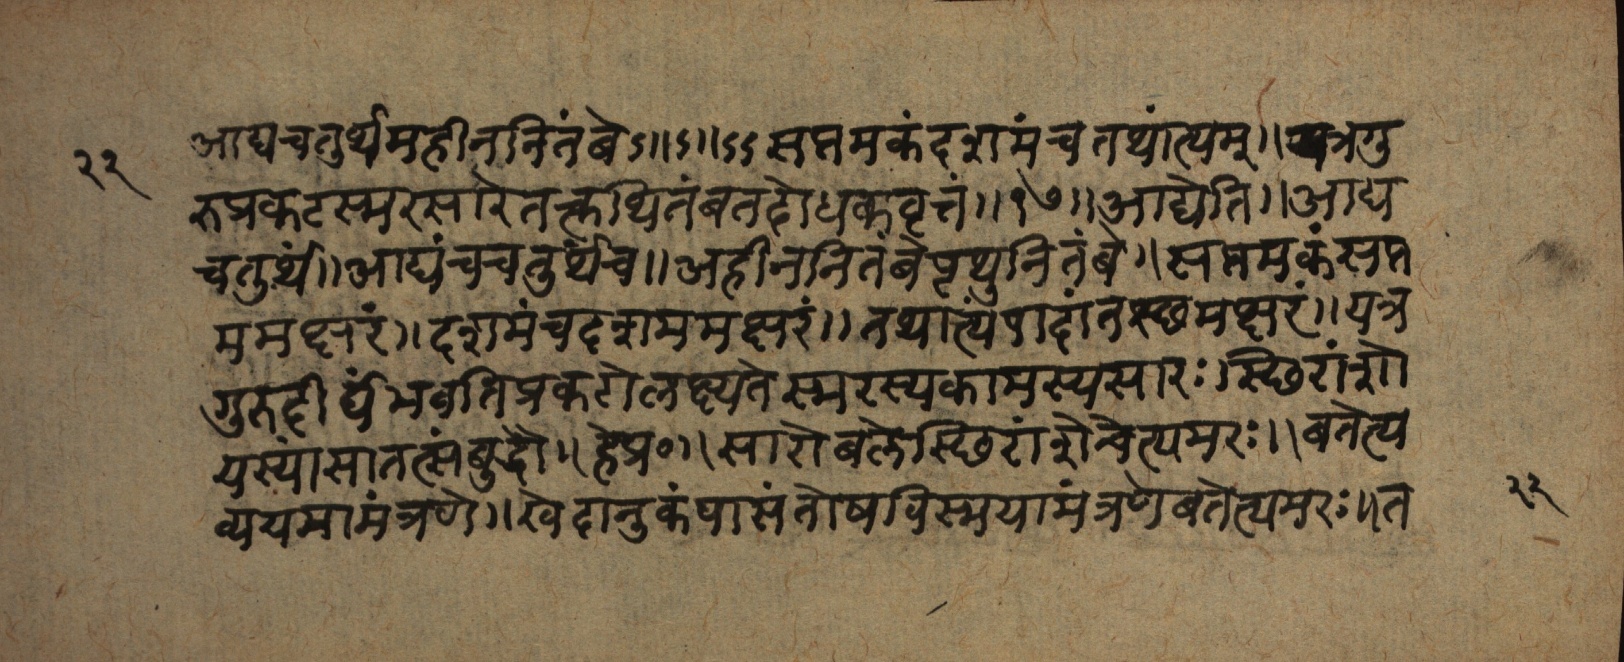 आद्यचतुर्थमहीननितंबेऽ॥ऽ॥ऽऽ सप्तमकंदशमंचतथांत्यम्॥यत्रगु
रुप्रकटस्मरसारेतत्कथितंबतदोधकवृत्तं॥१७॥आद्येति॥आद्य
चतुर्थं॥आद्यंचचतुर्थंच॥अहीननितंबेपृथुनितंबे॥सप्तमकंसप्त
ममक्षरं॥दशमंचदशममक्षरं॥तथांत्यंपादांतस्थमक्षरं॥यत्र
गुरुदीर्घंभवतिप्रकटोलक्ष्यतेस्मरस्यकामस्यसारःस्थिरांशो
यस्यांसातत्संबुद्धौ॥हेप्र०॥सारोबलेस्थिरांशेचेत्यमरः॥बतेत्य
व्ययमामंत्रणे॥खेदानुकंपासंतोषविस्मयामंत्रणेबतेत्यमरः॥त
२२
२२